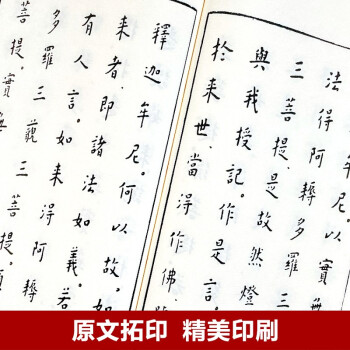 以實無
法得阿耨多羅三
三菩提是故然燈
與我授記。作是言。
於來世。當得作佛
釋迦牟尼。何以故。如
來者。即諸法如義。若
有人言。如來得阿耨
多羅三藐三菩提。須
菩提。實無
原文拓印 精美印刷